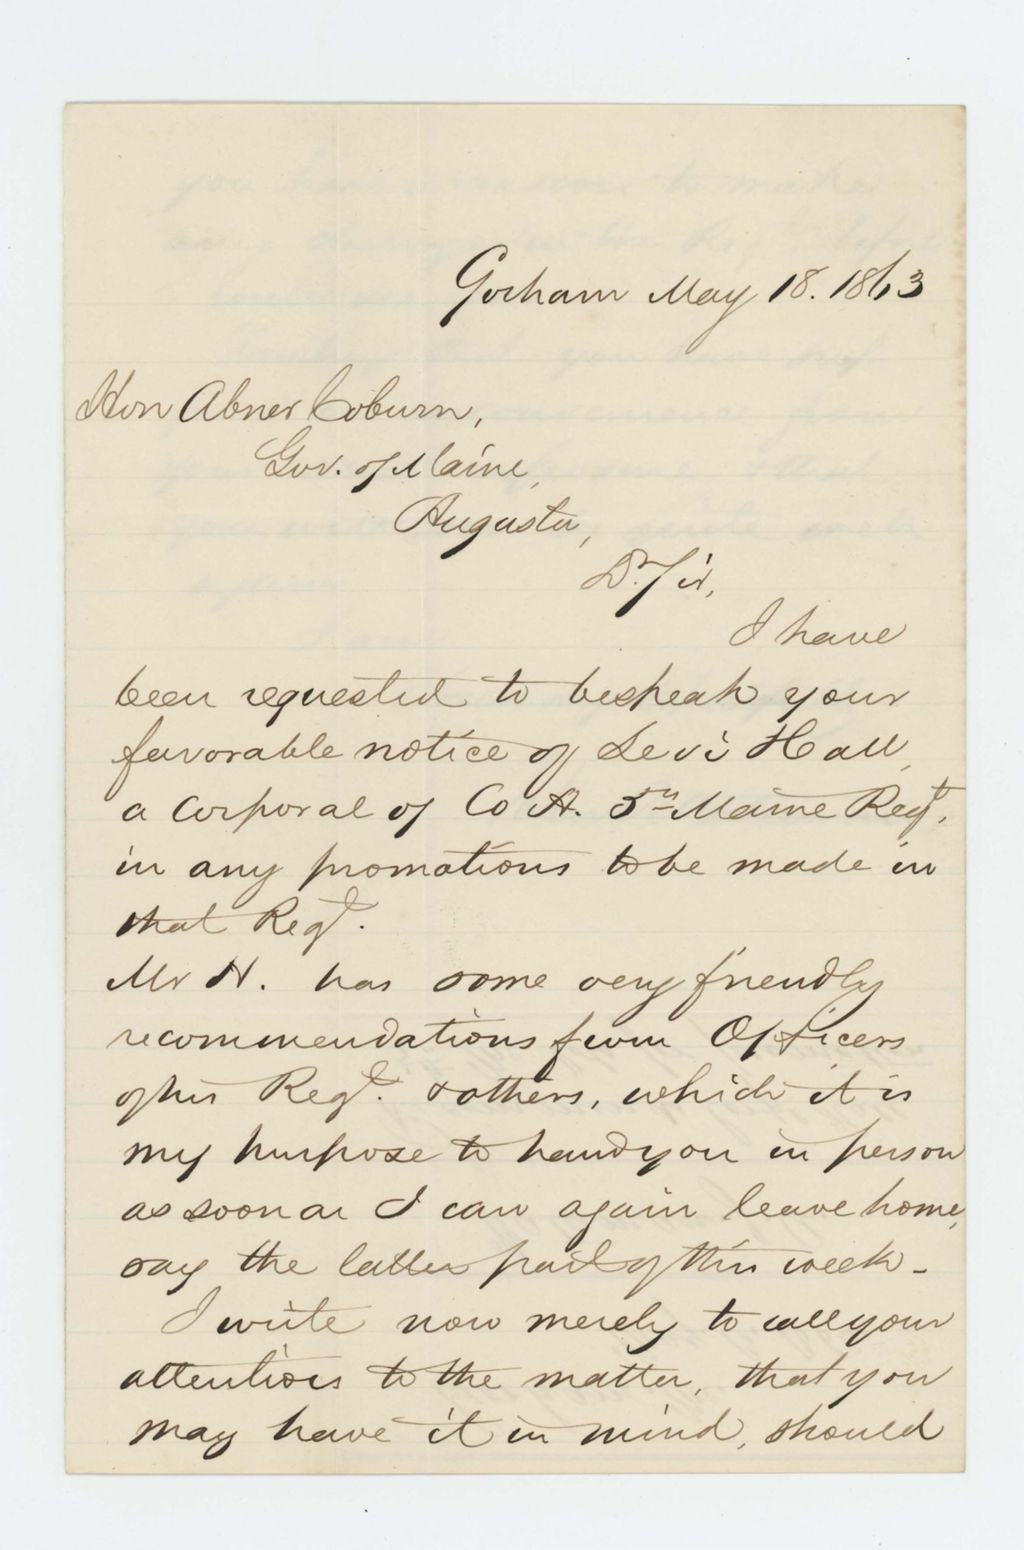 Gorham May 18. 1863
Hon Abner Coburn,
Gov. of Maine,
Augusta,
Dr. Sir,
I have
been requested to bespeak your
favorable notice of Levi Hall,
a Corporal of Co A. 5th Maine Regt,
in any promotions to be made in
that Regt.
Mr H. has some very friendly
recommendations from Officers
of his Regt. & others, which it is
my purpose to hand you in person
as soon as I can again leave home,
say the latter part of this week -
I write now merely to call your
attention to the matter, that you
may have it in mind, should